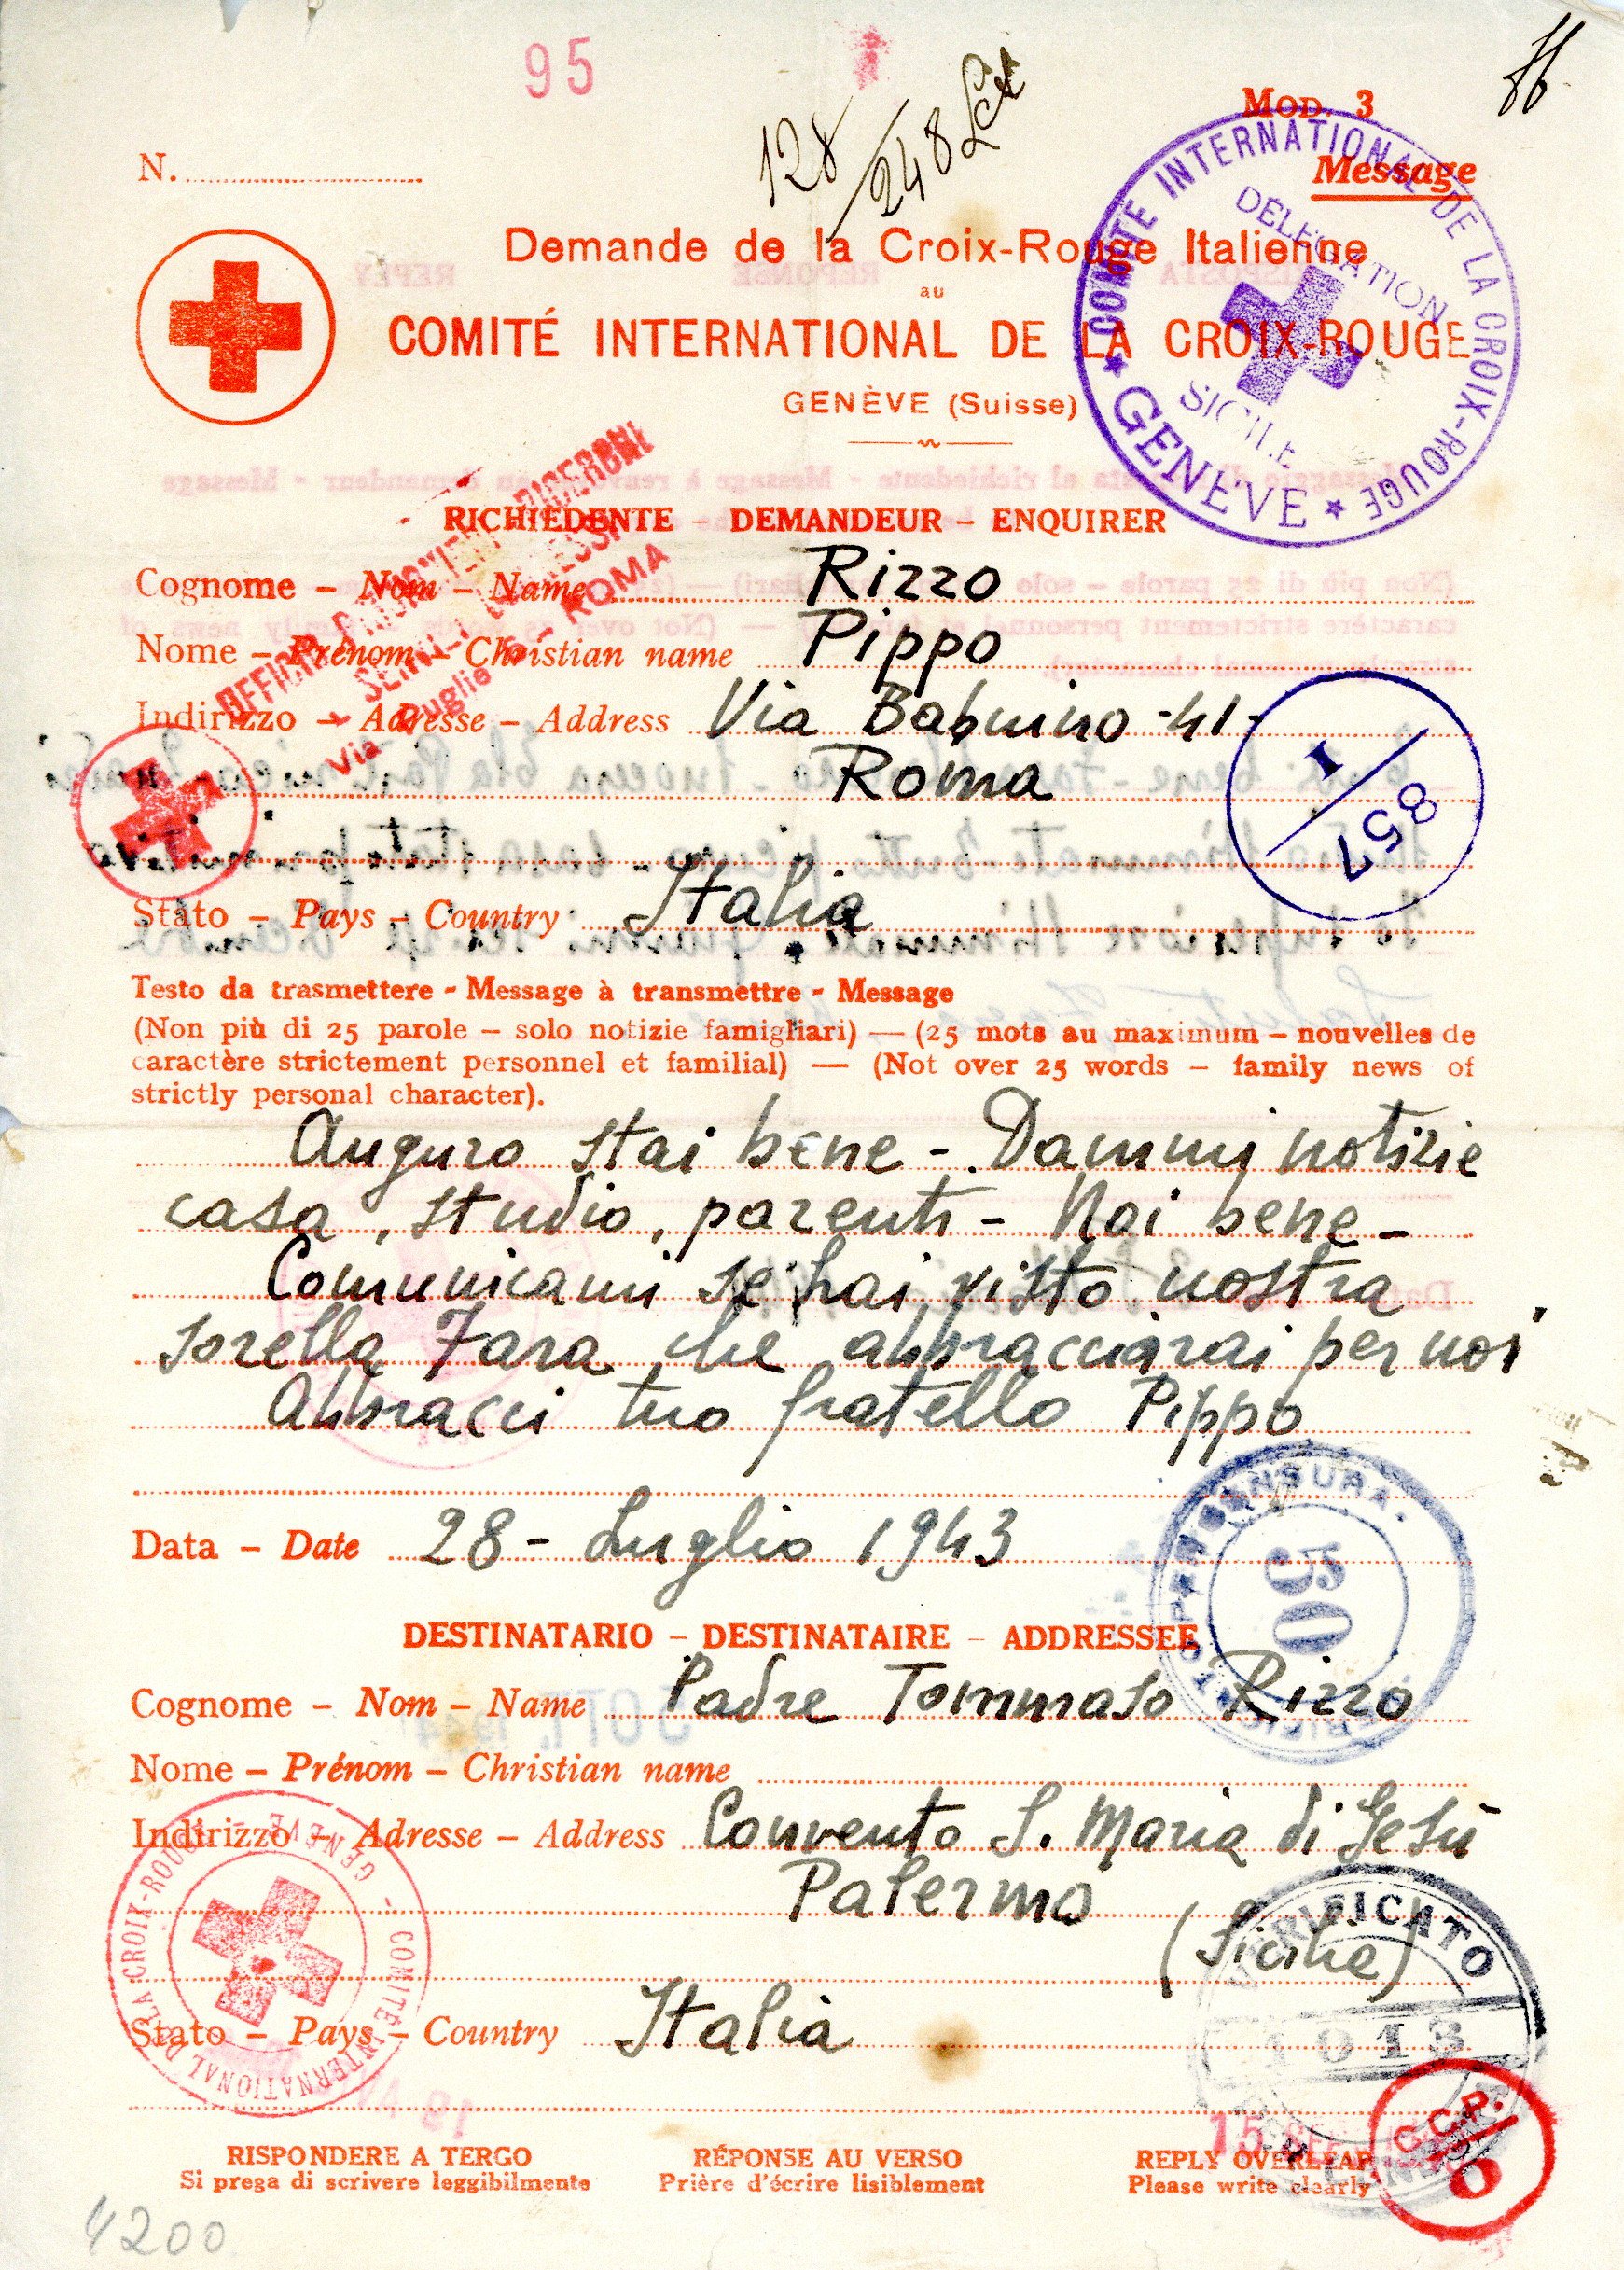 95
128/248
MOD. 3
Message
N.
Demande de la Croix-Rouge Italienne
au
COMITÉ INTERNATIONAL DE LA CROIX-ROUGE
GENÈVE (Suisse)
COMITÉ INTERNATIONAL DE LA CROIX-ROUGE
DÉLÉGATION
SICILE
★ GENÈVE ★
RICHIEDENTE – DEMANDEUR – ENQUIRER
UFFICIO PRIGIONIERI
Via Puglie 6 - ROMA
Cognome – Nom – Name Rizzo
Nome – Prénom – Christian name Pippo
Indirizzo – Adresse – Address Via Babuino - 41 -
Roma
I/857
Stato – Pays – Country Italia
Testo da trasmettere - Message à transmettre - Message
(Non più di 25 parole – solo notizie famigliari) — (25 mots au maximum – nouvelles de
caractère strictement personnel et familial) — (Not over 25 words – family news of
strictly personal character).
Auguro stai bene - Dammi notizie
casa, studio, parenti - Noi bene -
Comunicami se hai visto nostra
sorella Fara che abbracciarai per noi
Abbracci tuo fratello Pippo
Data – Date 28 - Luglio 1943
CENSURA
50
DESTINATARIO – DESTINATAIRE – ADDRESSEE
Cognome – Nom – Name Padre Tommaso Rizzo
Nome – Prénom – Christian name
Indirizzo – Adresse – Address Convento S. Maria di Gesù
Palermo
(Sicilia)
Stato – Pays – Country Italia
COMITÉ INTERNATIONAL DE LA CROIX-ROUGE – GENÈVE –
VERIFICATO
1013
15
C.C.P.
0
RISPONDERE A TERGO
Si prega di scrivere leggibilmente
RÉPONSE AU VERSO
Prière d'écrire lisiblement
REPLY OVERLEAF
Please write clearly
4200